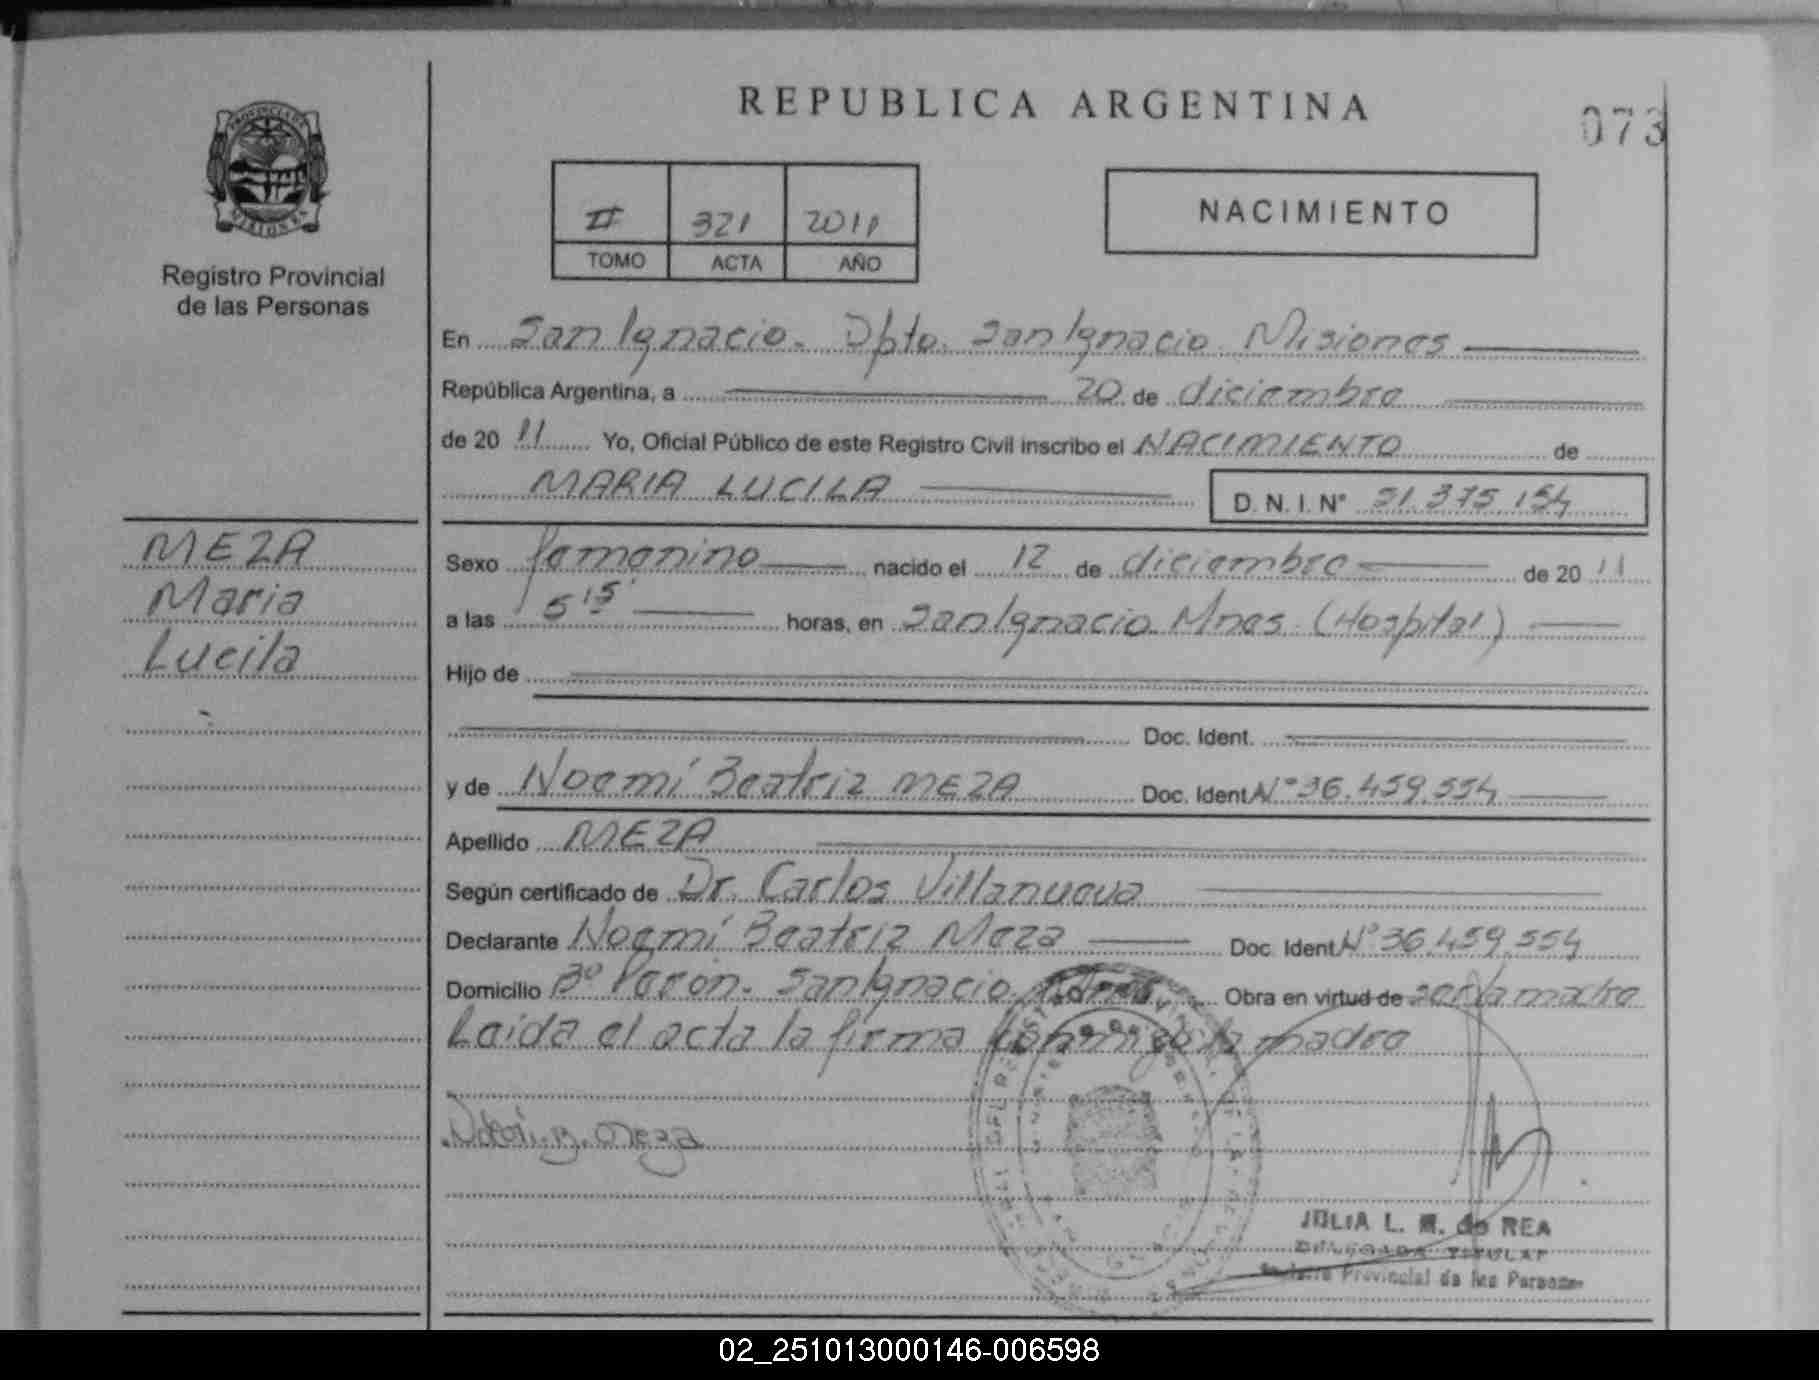 REPUBLICA ARGENTINA
073
Registro Provincial
de las Personas
II 321 2011
TOMO ACTA AÑO
NACIMIENTO
En San Ignacio. Dpto. San Ignacio Misiones
República Argentina, a 20 de diciembre
de 20 11 Yo, Oficial Público de este Registro Civil inscribo el NACIMIENTO de
MARIA LUCILA D. N. I. N° 51.375.154
MEZA
Maria
Lucila
Sexo femenino nacido el 12 de diciembre de 20 11
a las 5 15' horas, en San Ignacio Mnes (Hospital)
Hijo de
Doc. Ident.
y de Noemí Beatriz MEZA Doc. Ident N° 36.459.554
Apellido MEZA
Según certificado de Dr. Carlos Villanueva
Declarante Noemí Beatriz Meza Doc. Ident N° 36.459.554
Domicilio B° Perón. San Ignacio Obra en virtud de ser la madre
Leida el acta la firma conmigo la madre
B. Meza
JULIA L. M. de REA
DELEGADA TITULAR
Provincial de las Personas
02_251013000146-006598